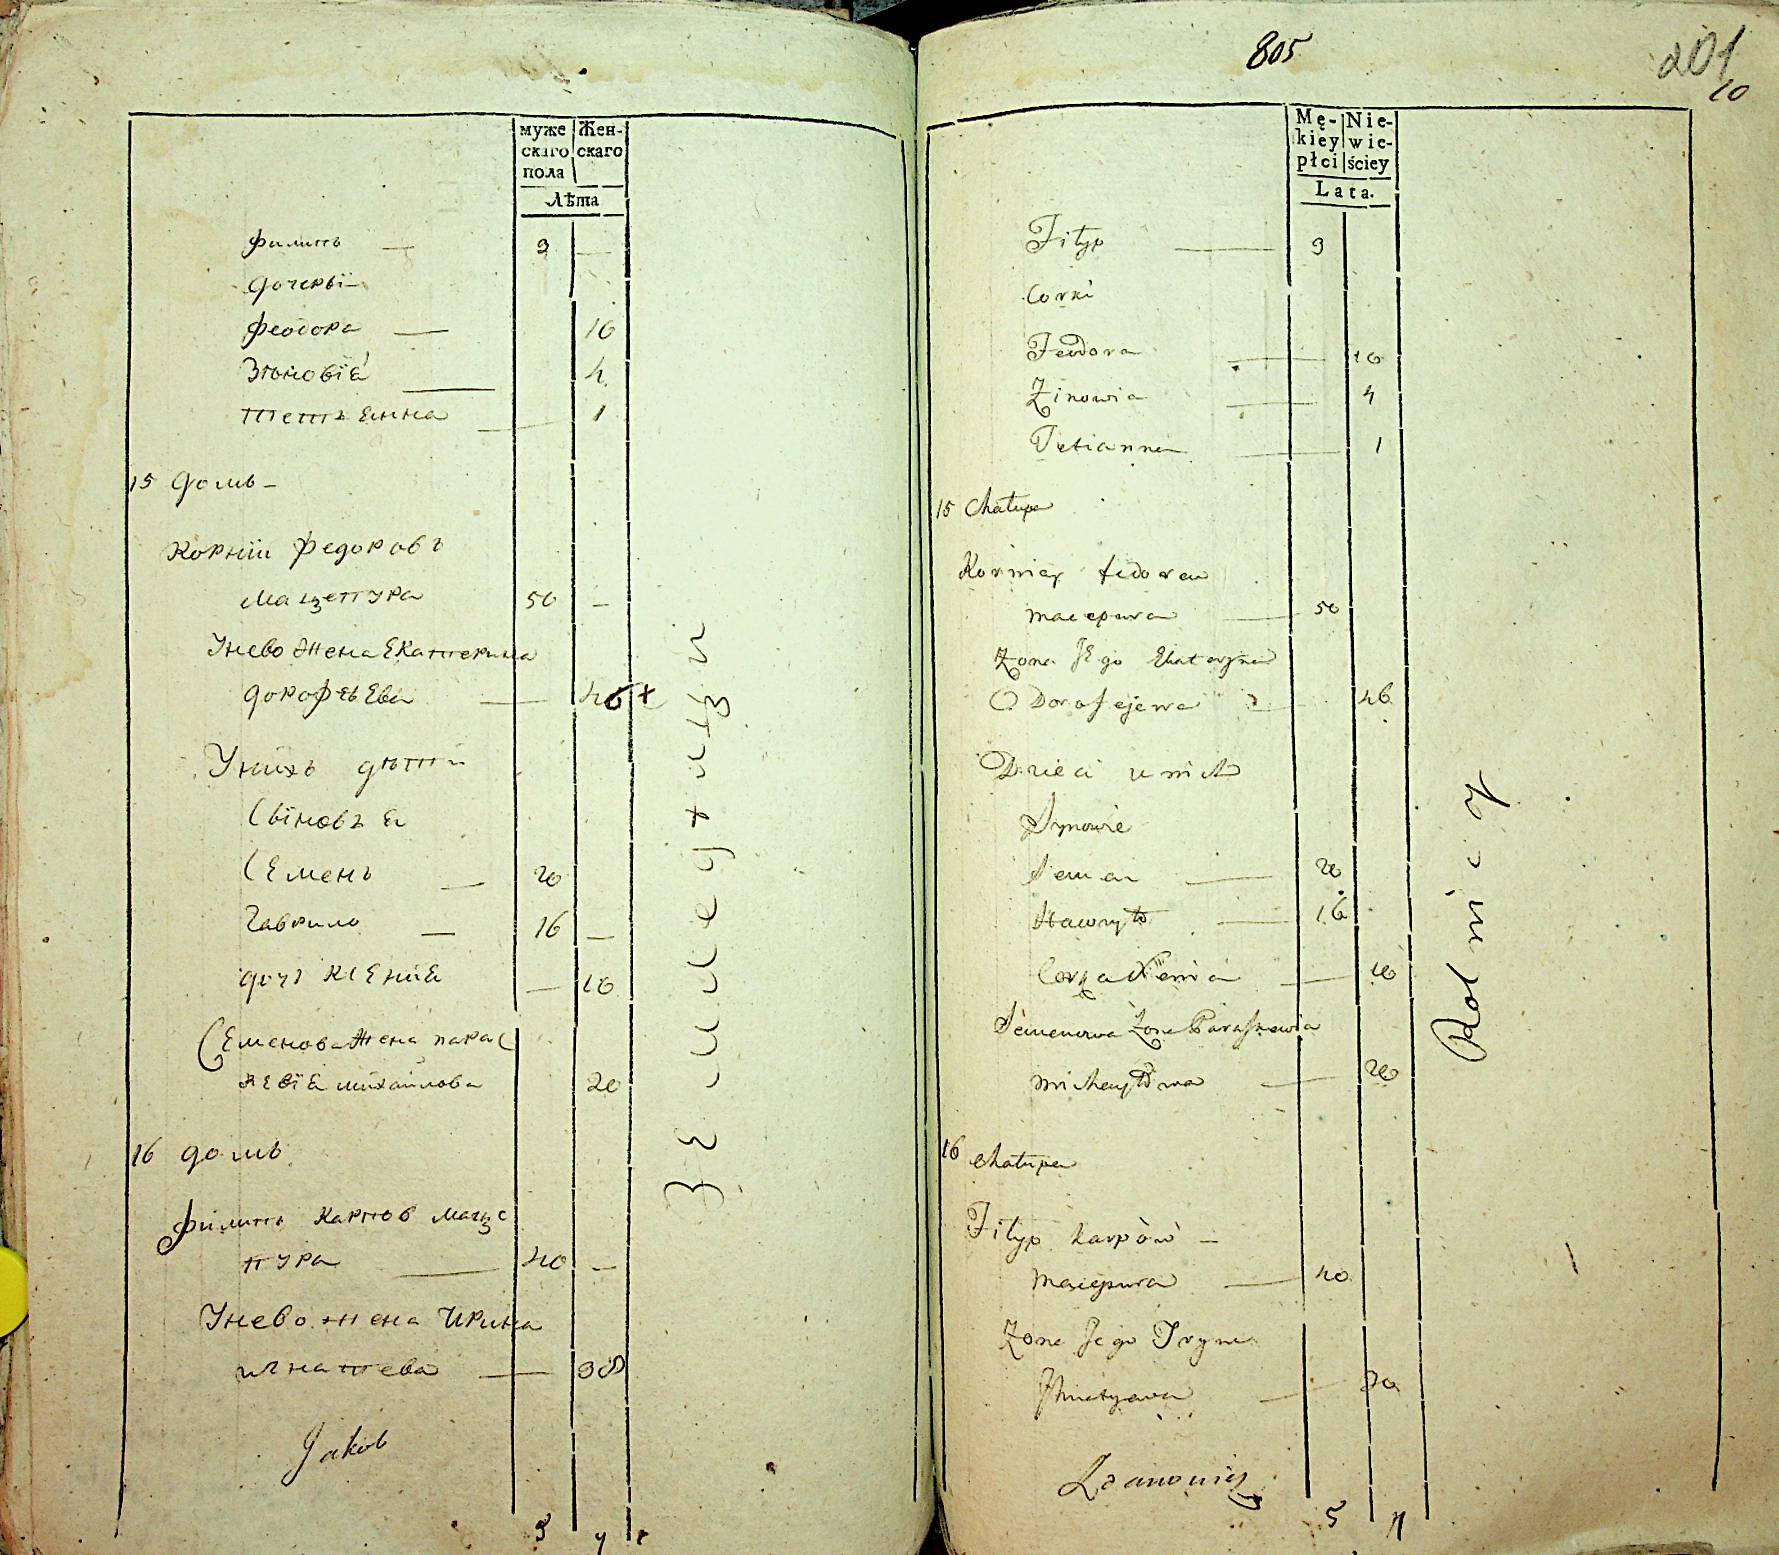 муже Жен-
скаго скаго
пола
Лѣта
филипъ — 9 —
дочерьі —
феодора — 16
Зѣновїа — 4
тетъянна — 1
15 домъ —
Корнїи федоровъ
мацепура 50 —
Унево жена Екатерина
дорофѣева — 46 +
Унихъ дѣти
Сьіновъя
Семенъ — 20
гаврило — 16 —
дочъ ксения — 10
Семенова жена парас
кевїя михаилова 20
16 домъ
филипъ карпов маце
пура — 40 —
Унево жена Ирина
игнатева — 38
Jakob
5 4
Земледелци
805
201
10
Mę- Nie-
kiey wie-
płci ściey
Lata.
Filyp — 9
Corki
Feodora — 16
Zinowia — 4
Tetianna — 1
15 Chałupa
Korniey fedorow
macepura — 50
Zona Jego Ekateryna
Dorofejewa — 46
Dzieci u nich
Synowie
Semen — 20
Hawryło — 16
Corka Xenia — 10
Semenowa Zona Paraskewia
michayłowa — 20
16 chałupa
Filyp karpów —
macepura — 40
Zona Jego Iryna
Ihnatyewa — 38
5 4
Rolnicy